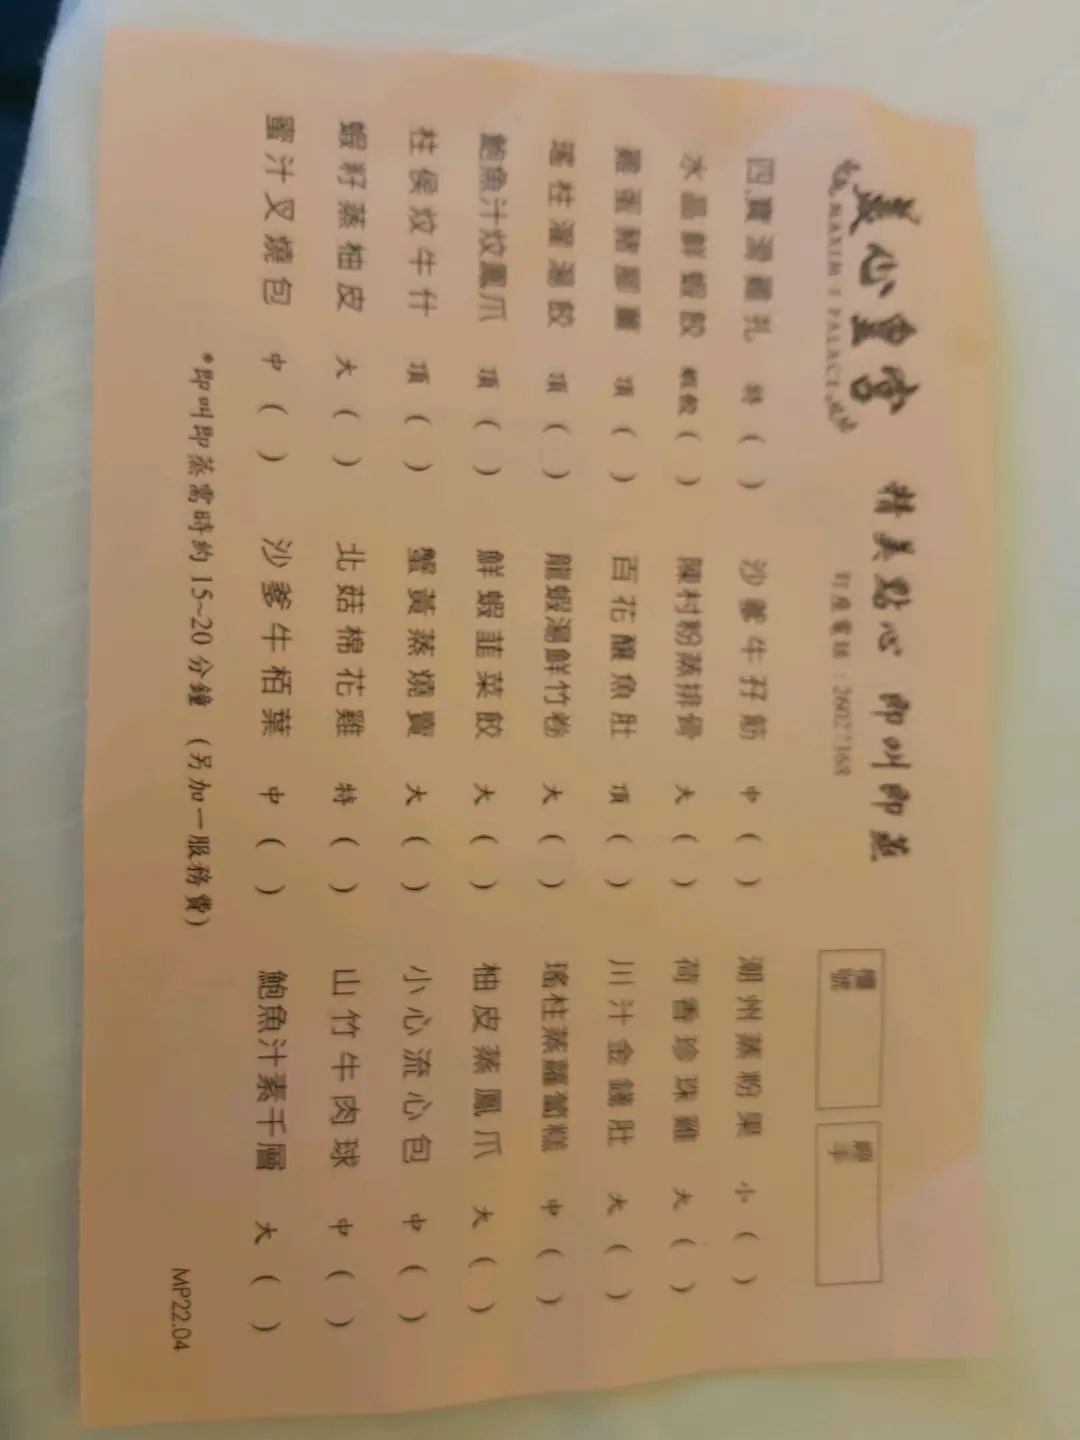 美心皇宮 精美點心 即叫即蒸
MAXIM'S PALACE 訂座電話：26027368
檯號
經手
四寶滑雞扎 特 ( ) 沙爹牛孖筋 中 ( ) 潮州蒸粉果 小 ( )
水晶鮮蝦餃 蝦餃 ( ) 陳村粉蒸排骨 大 ( ) 荷香珍珠雞 大 ( )
雞蛋豬腳薑 頂 ( ) 百花釀魚肚 頂 ( ) 川汁金錢肚 大 ( )
瑤柱灌湯餃 頂 ( ) 龍蝦湯鮮竹卷 大 ( ) 瑤柱蒸蘿蔔糕 中 ( )
鮑魚汁炆鳳爪 頂 ( ) 鮮蝦韮菜餃 大 ( ) 柚皮蒸鳳爪 大 ( )
柱侯炆牛什 頂 ( ) 蟹黃蒸燒賣 大 ( ) 小心流心包 中 ( )
蝦籽蒸柚皮 大 ( ) 北菇棉花雞 特 ( ) 山竹牛肉球 中 ( )
蜜汁叉燒包 中 ( ) 沙爹牛栢葉 中 ( ) 鮑魚汁素千層 大 ( )
*即叫即蒸需時約15~20分鐘 (另加一服務費)
MP22.04